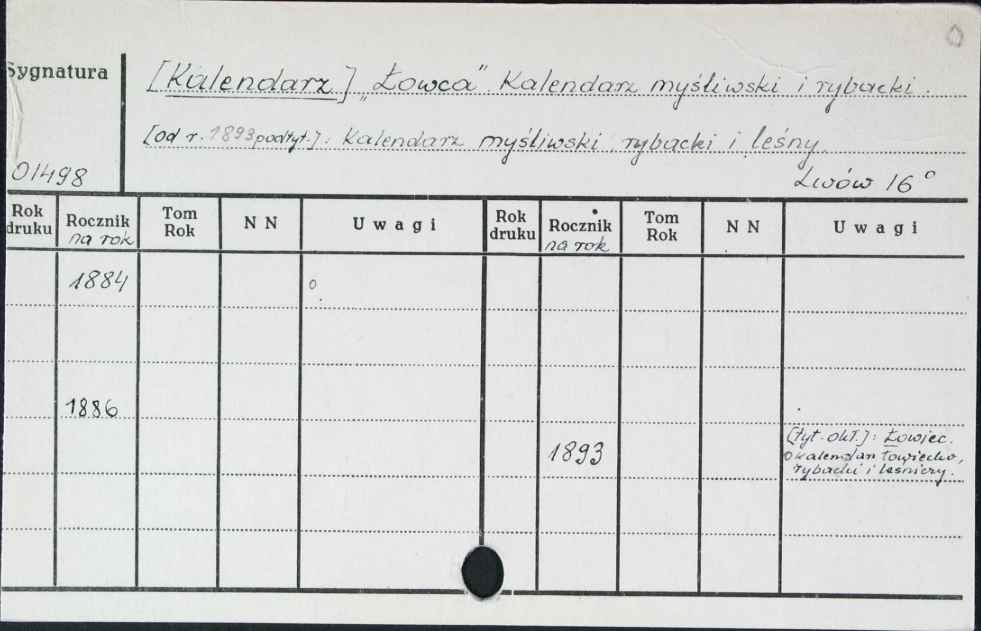 Sygnatura
[Kalendarz] „Łowca" Kalendarz myśliwski i rybacki.
[od r. 1893 podtyt.]: Kalendarz myśliwski, rybacki i leśny.
01498
Lwów 16°
Rok druku Rocznik na rok Tom Rok N N Uwagi Rok druku Rocznik na rok Tom Rok N N Uwagi
1884
1886
1893
[tyt. okł.]: Łowiec.
kalendarz łowiecko,
rybacki i leśniczy.